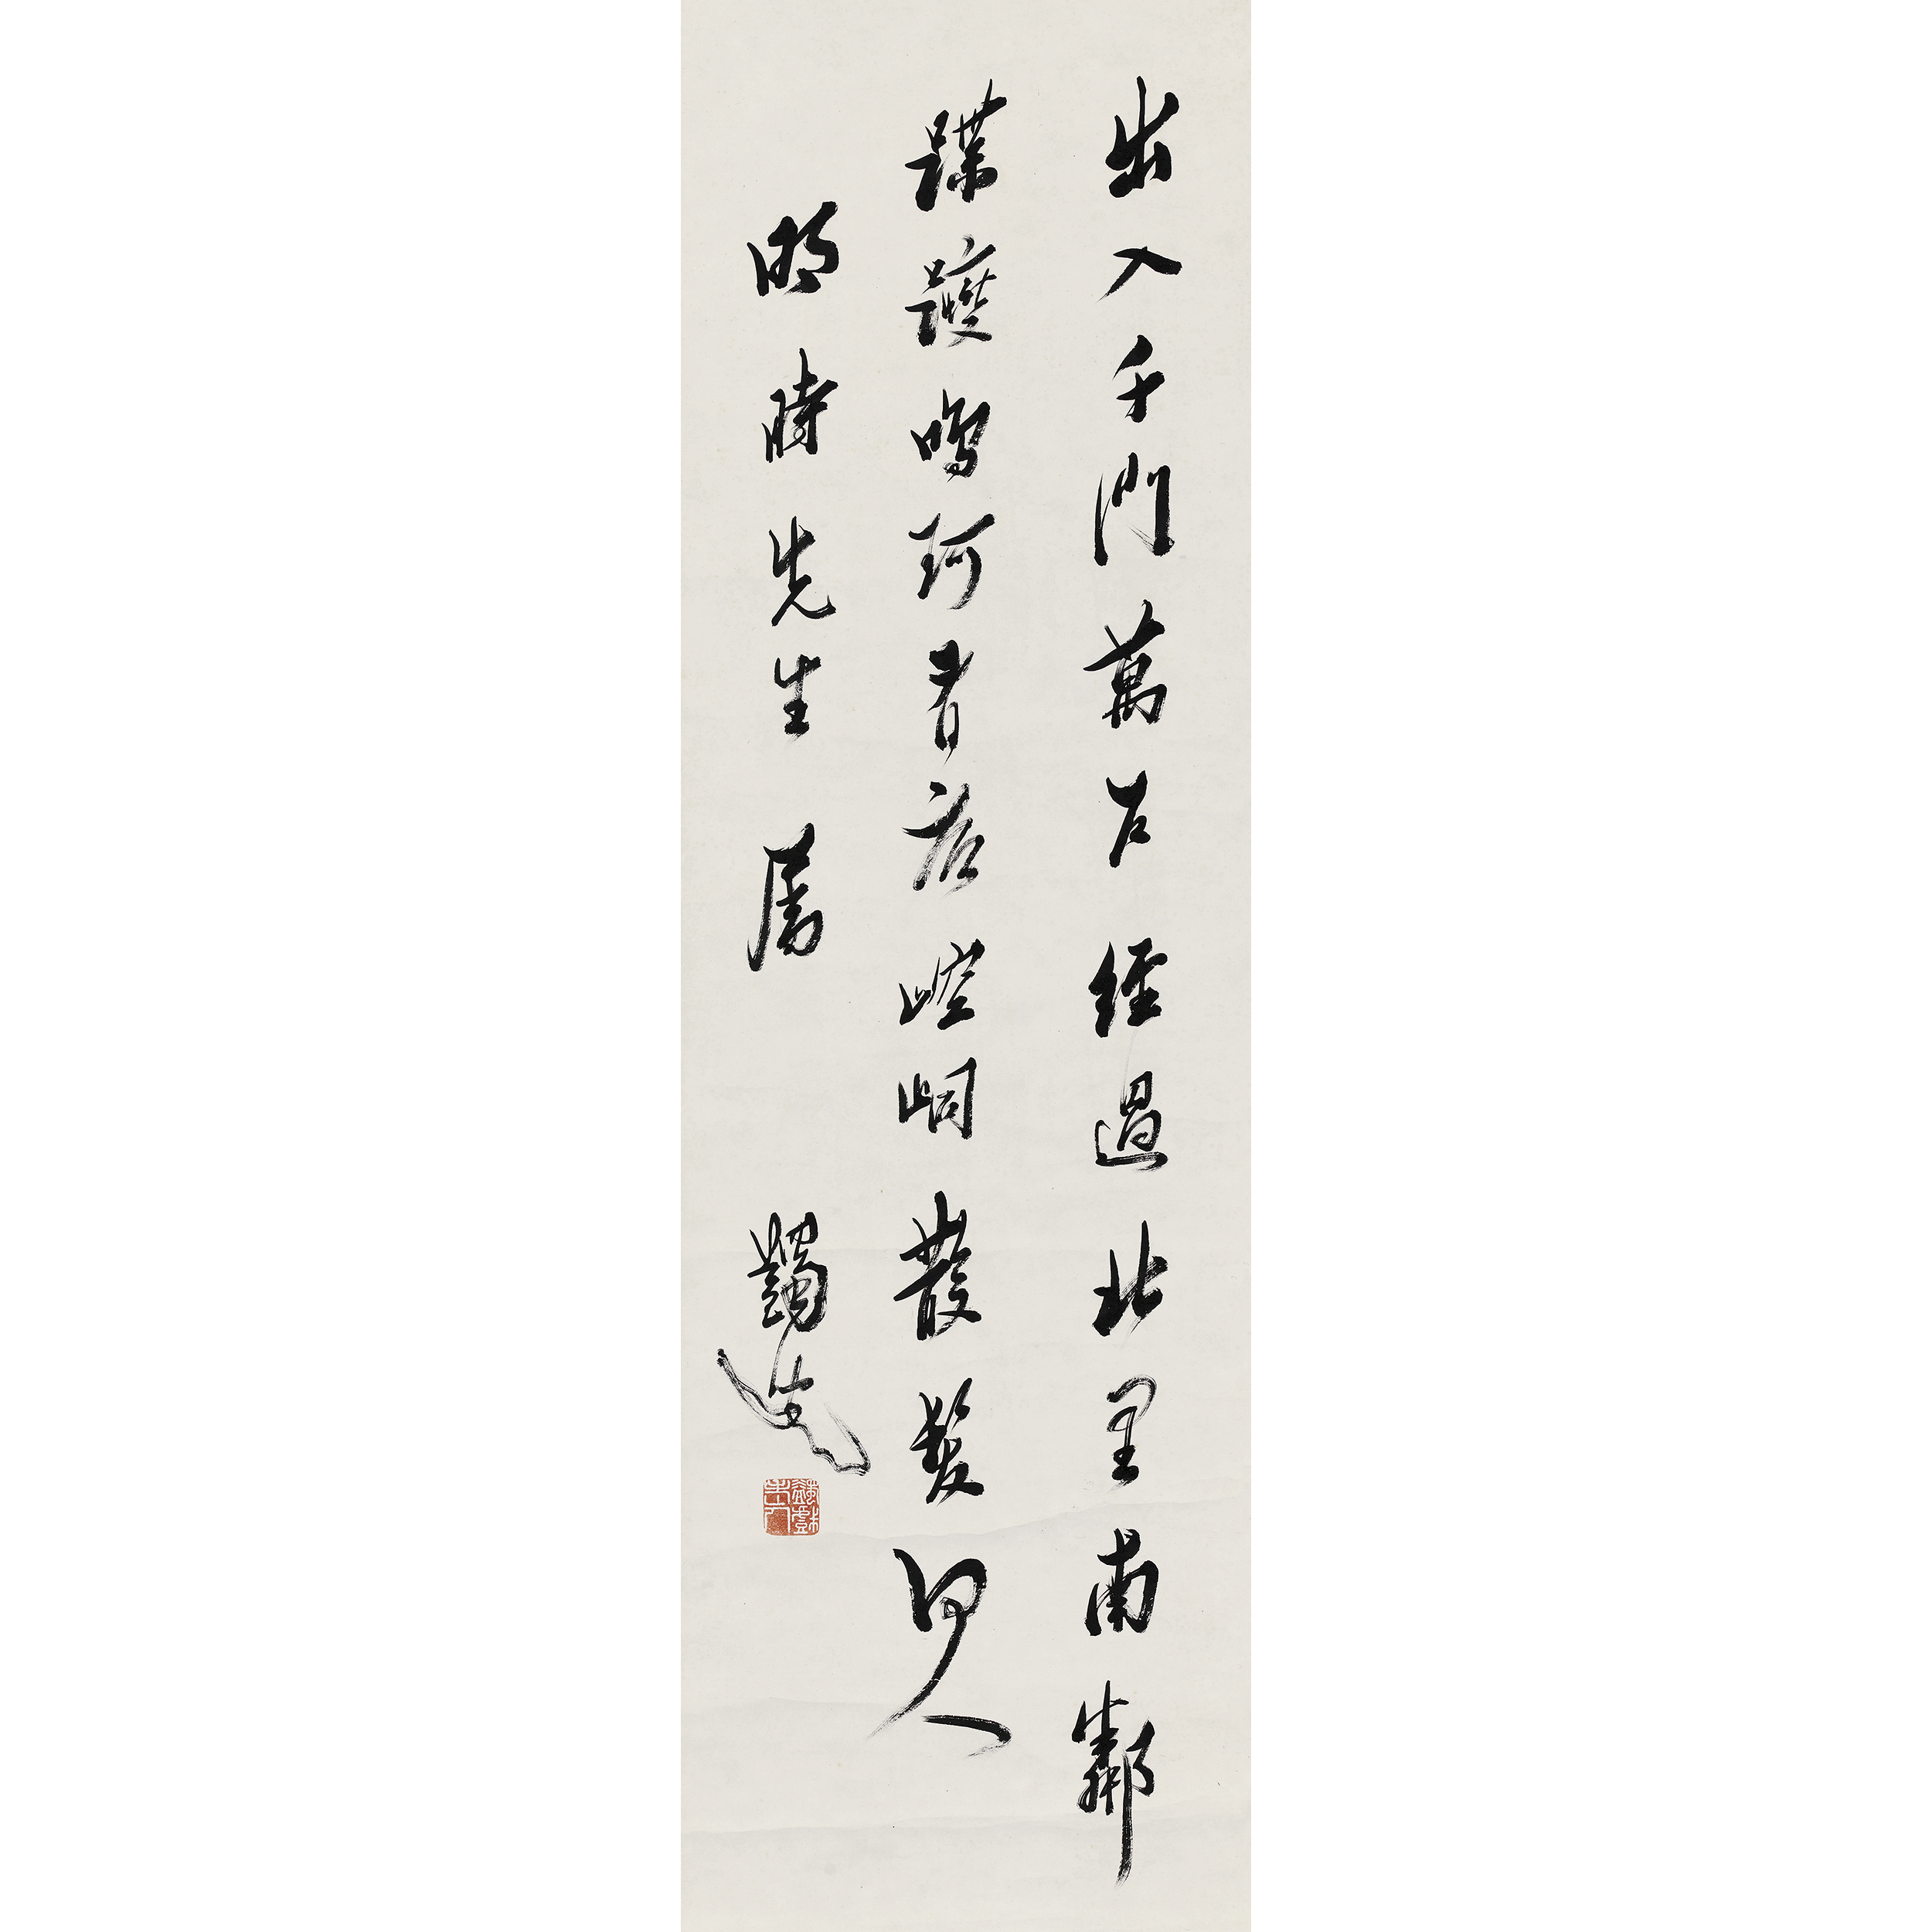 出入千門萬戶經過北里南鄰
蹀躞鳴珂有底崆峒散髮何人
明時先生屬
蠲先